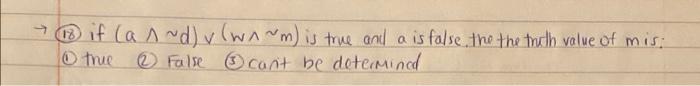 → ⑱ if (a ∧ ~d) v (w ∧ ~m) is true and a is false, the the truth value of m is:
① true ② False ③ cant be determined